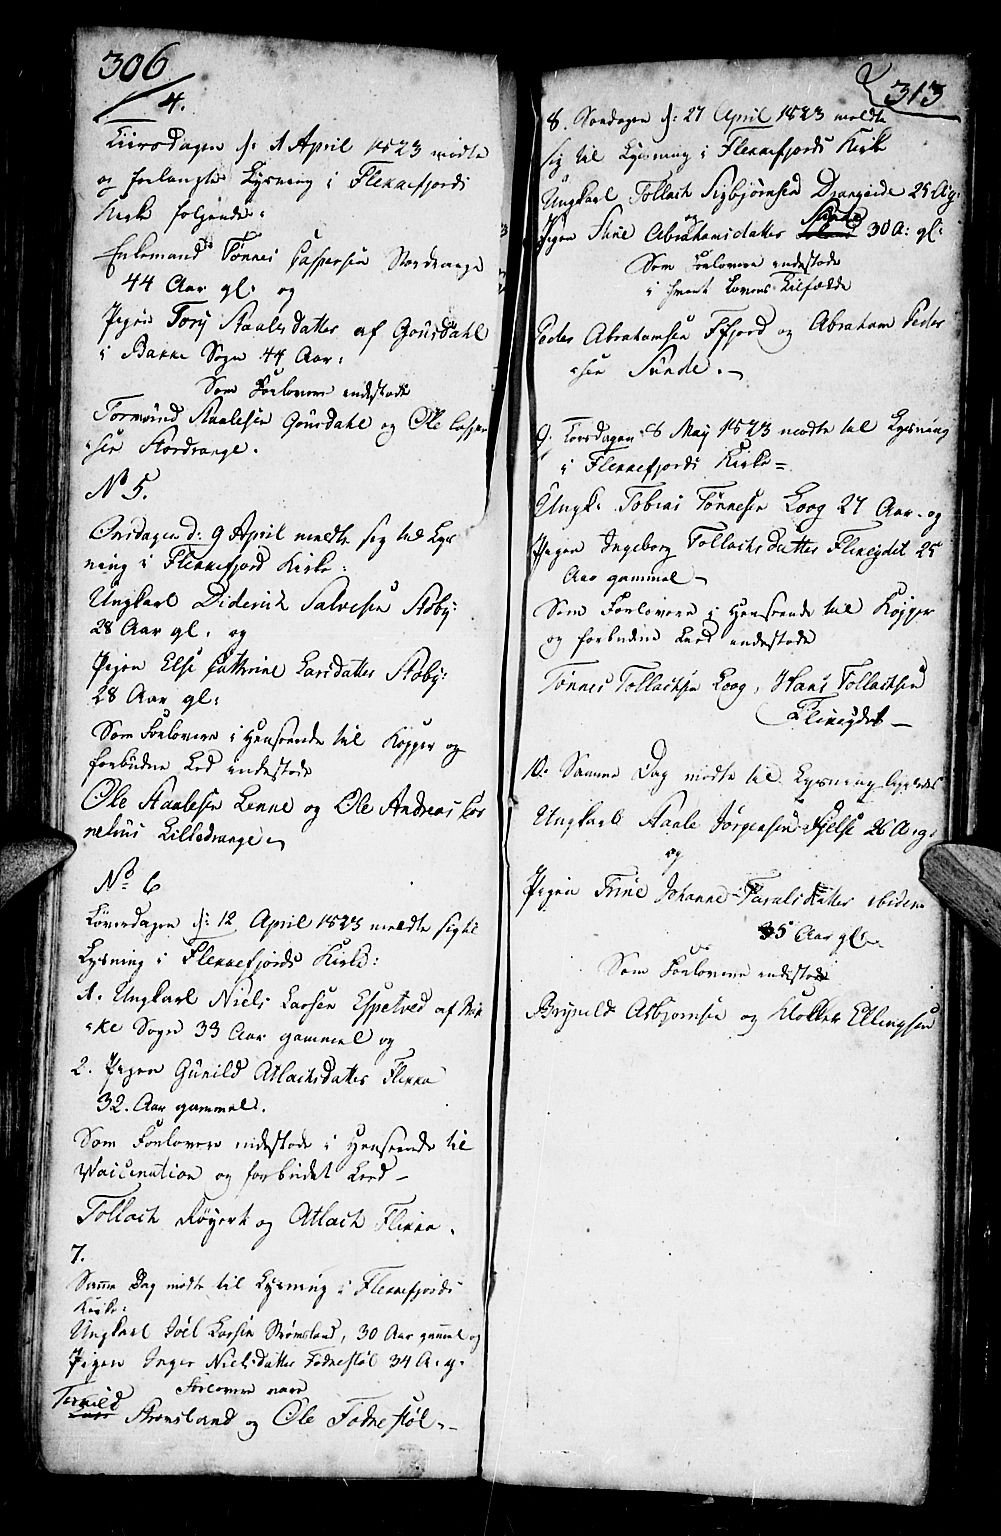 306
4.
Tirsdagen d: 1 April 1823 mødte
og forlangte Lysning i Flekkefjords
Kirke følgende:
Enkemand Tønnes Caspersen Stordrange
44 Aar gl: og
Pigen Tory Staalesdatter af Gousdahl
i Bakke Sogn 44 Aar:
Som Forlovere indestode
Tormond Staalesen Gousdahl og Ole Casper
-sen Stordrange.
No 5.
Onsdagen d: 9 April meldte sig til Lys
ning i Flekkefjord Kirke:
Ungkarl Diderich Salvesen Stoby:
28 Aar gl: og
Pigen Else Cathrine Larsdatter Stoby:
28 Aar gl:
Som Forlovere i Henseende til Kopper og
forbudne Led indestode
Ole Staalesen Lenne og Ole Andreas Cor
nelius Lilledrange
No 6
Løverdagen d: 12 April 1823 meldte sig til
Lysning i Flekkefjords Kirke:
1. Ungkarl Niels Larsen Espetved af Bak
-ke Sogn 33 Aar gammel og
2. Pigen Gunild Atlaksdatter Flikka
32. Aar gammel.
Som Forlovere indestode i Henseende til
Vaicination og forbudet Leed -
Tollach Røyert og Atlach Flikka.
7.
Samme Dag mødte til Lysning i Flekkefjords
Kirke:
Ungkarl Joel Larsen Strømsland, 30 Aar gammel og
Pigen Inger Nielsdatter Fodnestøl 34 A. g.
Forlovere vare
Terkild
Stromsland og Ole Fodnestøl. -
313
8. Søndagen d: 27 April 1823 meldte
sig til Lysning i Flekkefjords Kirke
Ungkarl Tollach Sigbjørnsen Drangeide 25 A g:
og
Pigen Stine Abrahamsdatter Sunde 30 A: gl:
Som Forlovere indestode
i hvert Lovens Tilfælde
Peder Abrahamsen Ffjord og Abraham Peder
-sen Sunde. -
9. Torsdagen 8 May 1823 mødte til Lysning
i Flekkefjords Kirke =
Ungk: Tobias Tønnesen Loog 27 Aar. og
Pigen Ingeborg Tollachsdatter Flineydet 25
Aar gammel -
Som Forlovere i Henseende til Kopper
og forbudne Leed indestode
Tønnes Tollachsen Loog, Hans Tollachsen
Flineydet -
10. Samme Dag mødte til Lysning ligeledes
Ungkarl Staale Jørgensen Fjelse 26 A: g:
og
Pigen Trine Johanne Tarald datter ibidem
35 Aar gl.
Som Forlovere indestode
Brynild Asbjørnsen og Klokker Ellingsen